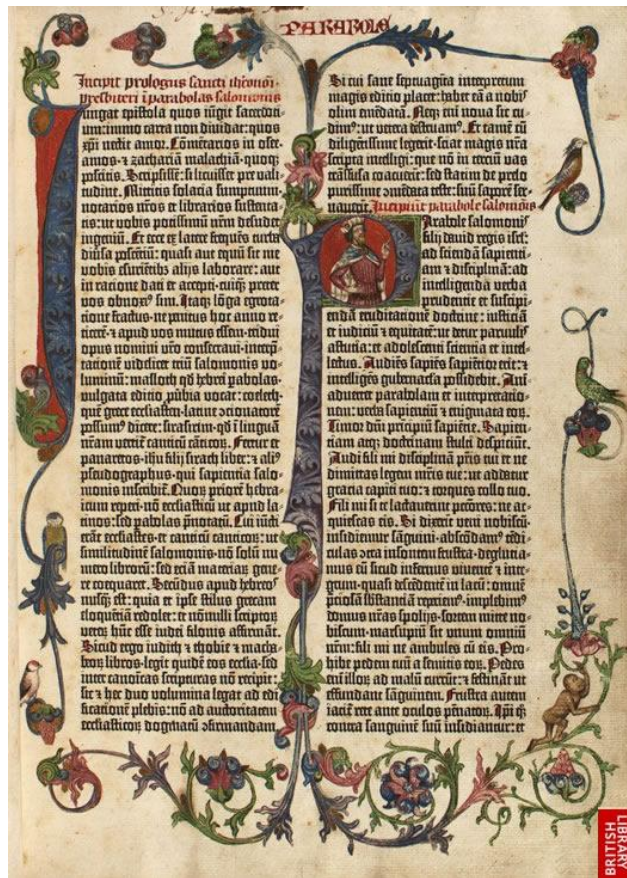 PARABOLE
Incipit prologus sancti iheronimi
presbiteri i parabolas salomonis
Iungat epistola quos iūgit sacerdoti-
um: immo carta non dividat: quos
xp̄i nectit amor. Cōmētarios in osee-
amos ⁊ zachariā malachiā quoqꝫ
poscitis. Scripsissē: si licuisset pre vali-
tudine. Mittitis solacia sumptuum-
notarios nr̄os et librarios sustenta-
tis: ut vobis potissimū nr̄m desudet
ingeniū. Et ecce ex latere frequēs turba
diūsa poscētiū: quasi aut equū sit me
vobis esuriētibꝫ alijs laborare: aut
in ratione dati et accepti cuiqꝫ preter
vos obnoxiꝰ sim. Itaqꝫ lōga egrota-
tione fractus ne penitus hoc anno re-
ticerē ⁊ apud vos mutus essem tridui
opus nomini vr̄o consecravi interp̄-
tationē videlicet triū salomonis vo-
luminū: masloth qd̄ hebrei pabolas
vulgata editio ꝓūbia vocat: coeleth-
quē grece ecclesiasten latine ɔcionatorē
possumꝰ dicere: sirasirim qd̄ ī linguā
nr̄am vertit̄ canticū cāticoꝝ. Fertur et
panaretos ihu filij sirach liber: ⁊ aliꝰ
pseudographus qui sapientia salo-
monis inscribit̄. Quoꝝ priorē hebra-
icum repperi nō ecclesiasticū ut apud la-
tinos: sed pabolas p̄notatū. Cui iūcti
erāt ecclesiastes et canticū canticoꝝ: ut
similitudinē salomonis nō solū nu-
mero librorū: sed etiā materiaꝝ gene-
re coequaret. Secūdus apud hebreos
nusqꝫ est: quia et ipse stilus grecam
eloquētiā redolet: et nōnulli scriptoꝝ
veteꝝ hūc esse iudei filonis affirmāt.
Sicud ergo iudith ⁊ thobie ⁊ macha-
beoꝝ libros legit quidē eos ecclia sed
inter canonicas scripturas nō recipit:
sic ⁊ hec duo volumina legat ad edi-
ficationē plebis: nō ad auctoritatem
ecclesiasticoꝝ dogmatū ɔfirmandam
Si cui sane septuagīta interpretum
magis editio placet: habet eā a nobis
olim emēdatā. Neqꝫ eni nova sic cu-
dimꝰ: ut vetera destruamꝰ. Et tamē cū
diligētissime legerit sciat magis nr̄a
scripta intelligi: que nō in terciū vas
trāsfusa coacuerīt: sed statim de prelo
purissime ɔmēdata teste: suū saporē ser-
vaverīt. Incipiūt parabole salomōis
Parabole salomonis
filij david regis isrl̄:
ad sciendā sapienti-
am ⁊ disciplinā: ad
intelligendā verba
prudentie et suscipi-
endā eruditationē doctrine: iusticiā
et iudiciū ⁊ equitatē: ut detur parvulis
astutia: et adolescenti scientia et intel-
lectus. Audiēs sapiēs sapiētior erit: ⁊
intelligēs gubernacula possidebit. Ani-
advertet parabolam et interpretatio-
nem: verba sapientiū ⁊ enigmata eoꝝ.
Timor dn̄i principiū sapiētie. Sapien-
tiam atqꝫ doctrinam stulti despiciūt.
Audi fili mi disciplinā pr̄is tui et ne
dimittas legem mr̄is tue: ut addatur
gracia capiti tuo: ⁊ torques collo tuo.
Fili mi si te lactaverint pctōres: ne ac-
quiescas eis. Si dixerīt veni nobiscū-
insidiemur sāguini- abscōdamꝰ tēdi-
culas ɔtra insontem frustra- degluciamus
mus eū sicud infernus viventē ⁊ inte-
grum- quasi descēdentē in lacū: omnē
p̄ciosā sbstantiā reperiemꝰ- implebimꝰ
domus nr̄as spolijs- sortem mitte no-
biscum- marsupiū sit unum omniū
nr̄m: fili mi ne ambules cū eis. Pro-
hibe pedem tuū a semitis eoꝝ. Pedes
eni illoꝝ ad malū currūt: ⁊ festināt ut
effundant sāguinem. Frustra autem
iacit̄ rete ante oculos pēnatoꝝ. Ipi qꝫ
contra sanguinē suū insidiantur: et
BRITISH
LIBRARY